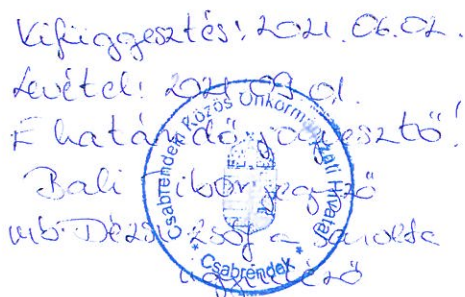 Kifüggesztés: 2021.06.02.
Levétel: 2021.09.01.
E határidő jogvesztő!
Bali Tibor jegyző
Csabrendeki Közös Önkormányzati Hivatal
* Csabrendek *